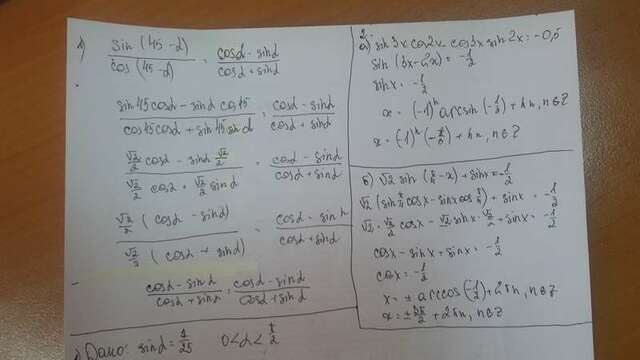 1) sin(45-α)/cos(45-α) = cosα - sinα/cosα + sinα
sin45cosα - sinα cos45/cos45cosα + sin45sinα = cosα - sinα/cosα + sinα
√2/2 cosα - sinα √2/2 / √2/2 cosα + √2/2 sinα = cosα - sinα/cosα + sinα
√2/2 (cosα - sinα) / √2/2 (cosα + sinα) = cosα - sinα/cosα + sinα
cosα - sinα/cosα + sinα = cosα - sinα/cosα + sinα
Дано: sinα = 0<α<π/2
2.
а) sin3x cos2x - cos3x sin2x = -0,5
sin(3x-2x) = -1/2
sinx = -1/2
x = (-1)ⁿ arcsin(-1/2) + πn, n∈Z
x = (-1)ⁿ(-π/6) + πn, n∈Z
б) √2 sin(π/4 - x) + sinx = -1/2
√2 (sin π/4 cosx - sinx cos π/4) + sinx = -1/2
√2 · √2/2 cosx - √2 sinx · √2/2 + sinx = -1/2
cosx - sinx + sinx = -1/2
cosx = -1/2
x = ± arccos(-1/2) + 2πn, n∈Z
x = ± + 2πn, n∈Z